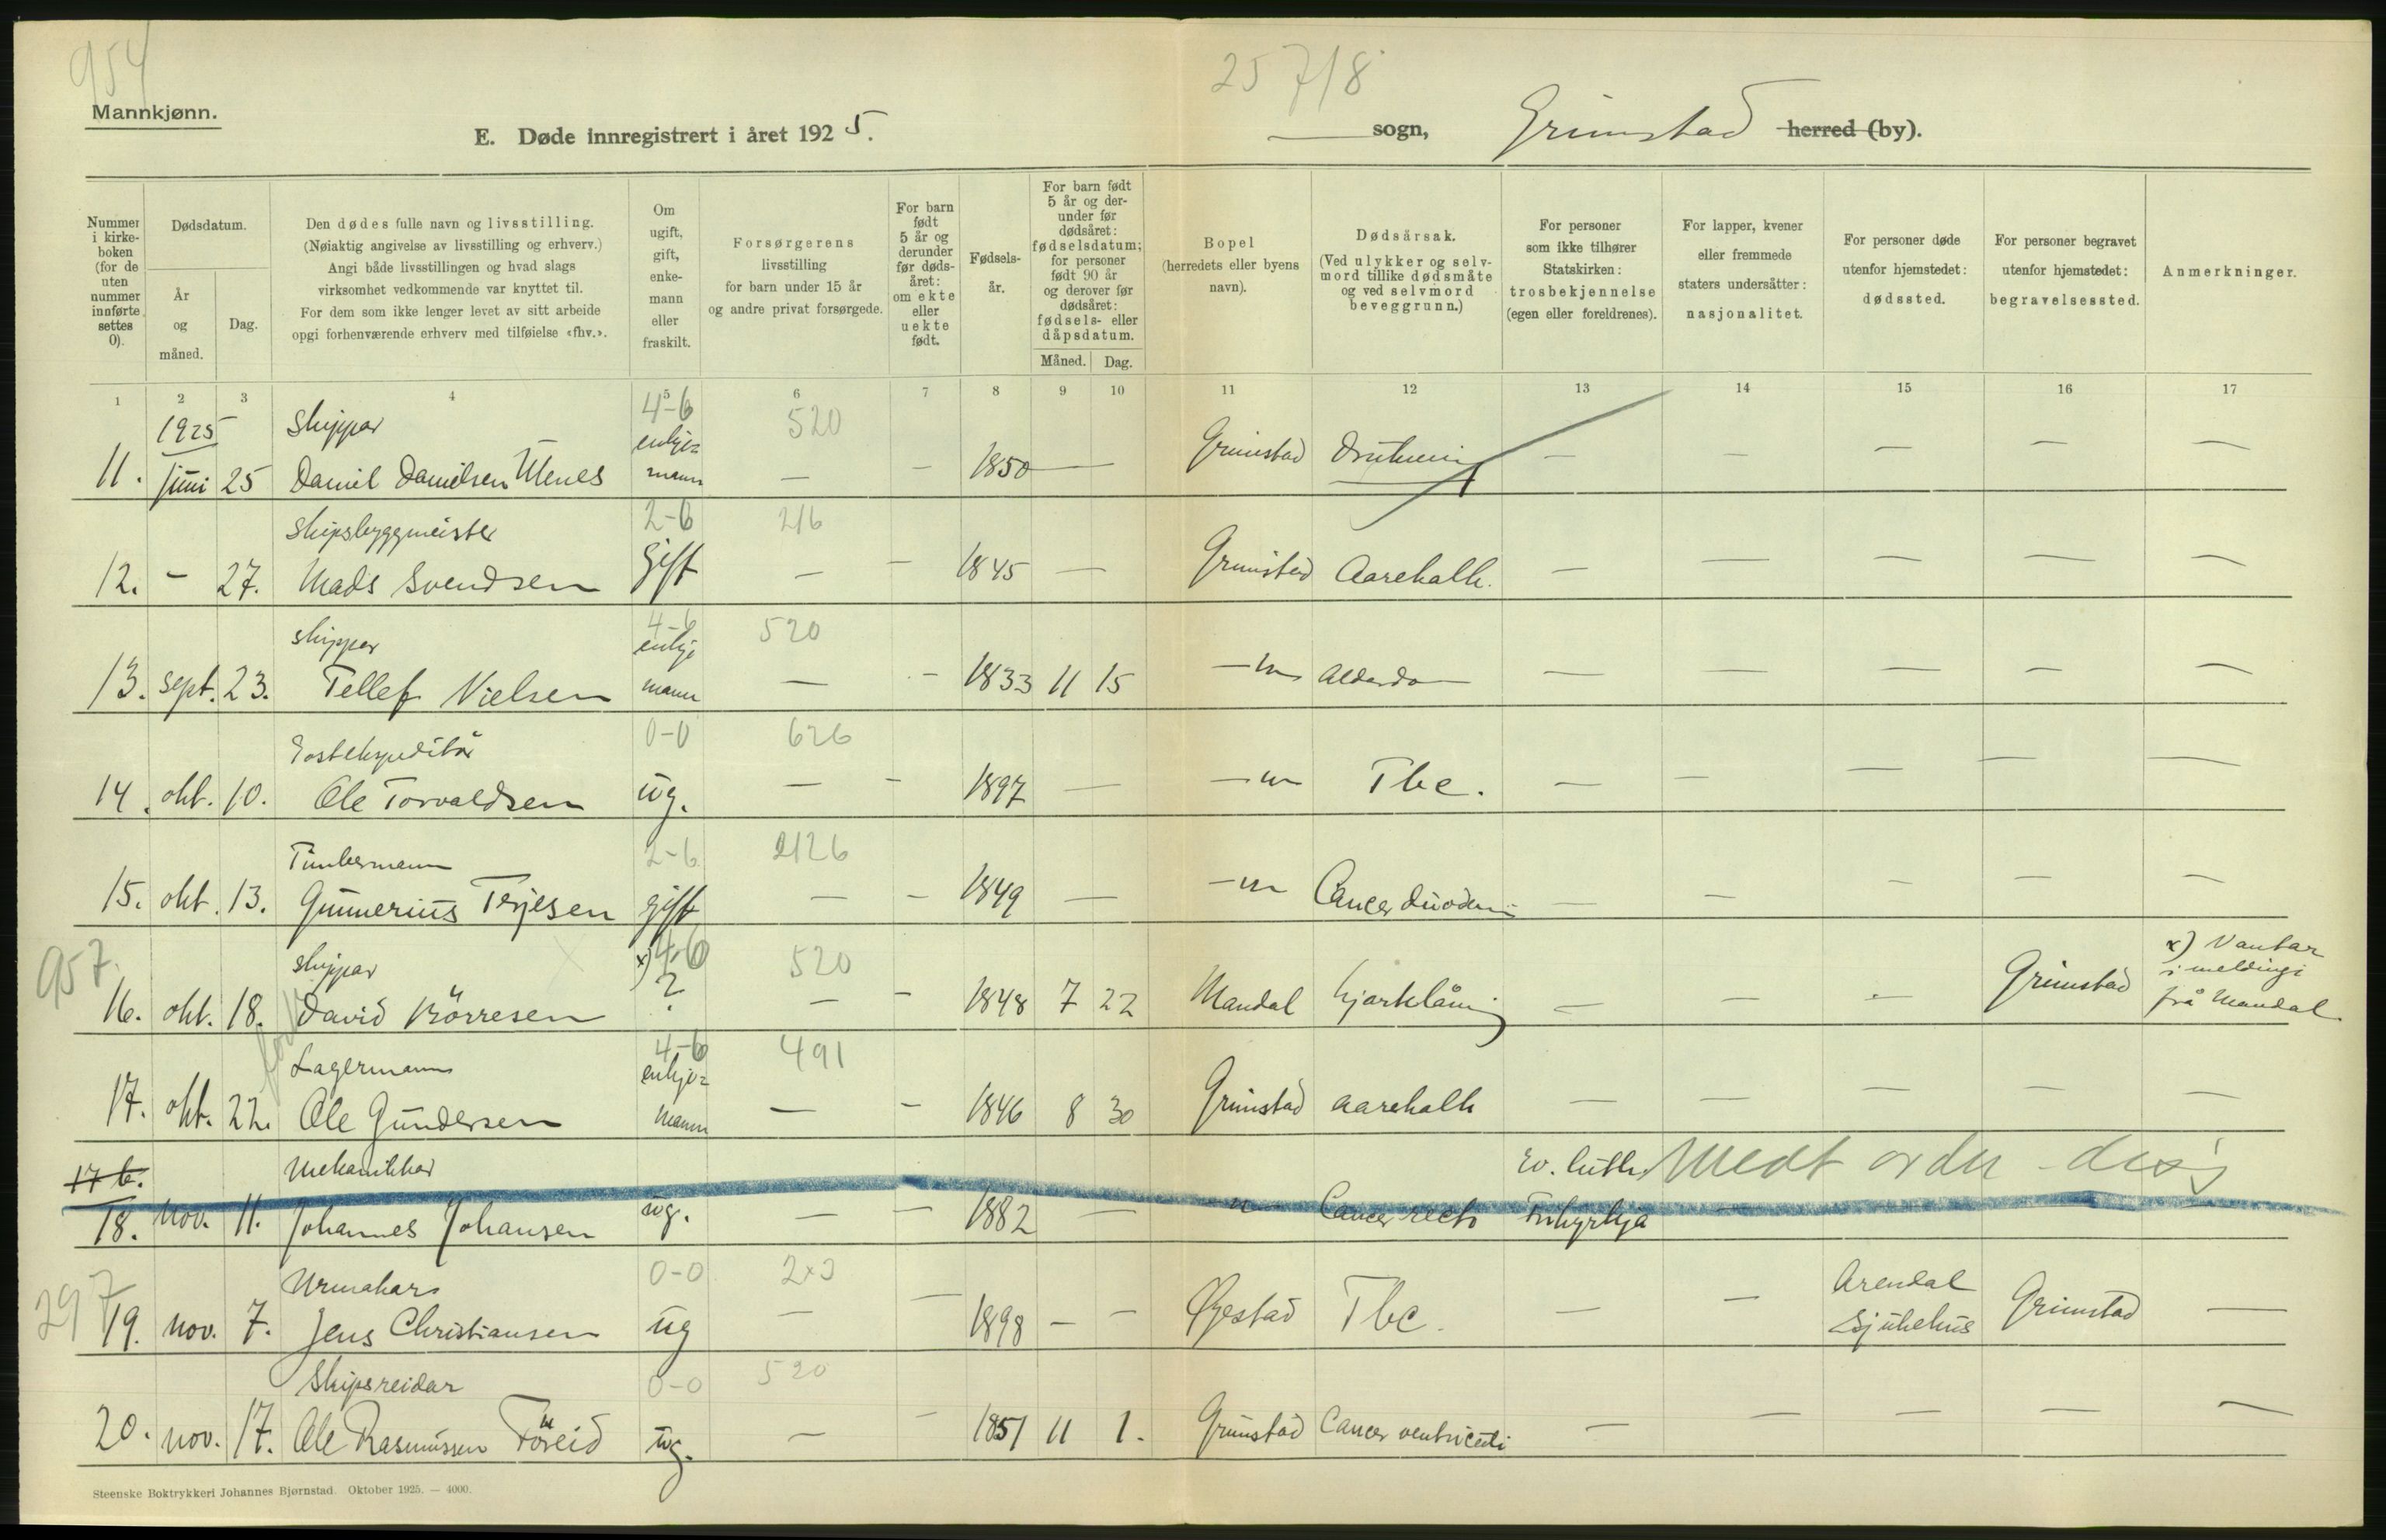 954
25 7/8
Mannkjønn.
E. Døde innregistrert i året 1925.
sogn, Grimstad herred (by).
Nummer i kirkeboken (for de uten nummer innførte settes 0).
Dødsdatum.
År og måned.
Dag.
Den dødes fulle navn og livsstilling.
(Nøiaktig angivelse av livsstilling og erhverv.)
Angi både livsstillingen og hvad slags
virksomhet vedkommende var knyttet til.
For dem som ikke lenger levet av sitt arbeide
opgi forhenværende erhverv med tilføielse «fhv.».
Om ugift, gift, enkemann eller fraskilt.
Forsørgerens
livsstilling
for barn under 15 år
og andre privat forsørgede.
For barn født 5 år og derunder før dødsåret: om ekte eller uekte født.
Fødselsår.
For barn født 5 år og derunder før dødsåret: fødselsdatum; for personer født 90 år og derover før dødsåret: fødsels- eller dåpsdatum.
Måned.
Dag.
Bopel
(herredets eller byens
navn).
Dødsårsak.
(Ved ulykker og selvmord tillike dødsmåte og ved selvmord beveggrunn.)
For personer
som ikke tilhører
Statskirken:
trosbekjennelse
(egen eller foreldrenes).
For lapper, kvener
eller fremmede
staters undersåtter:
nasjonalitet.
For personer døde
utenfor hjemstedet:
dødssted.
For personer begravet
utenfor hjemstedet:
begravelsessted.
Anmerkninger.
1 2 3 4 5 6 7 8 9 10 11 12 13 14 15 16 17
1925 Skippar 4-6 enkje= 520
11. juni 25 Daniel Danielsen mann — — 1850 — Grimstad — — — — —
Skipsbyggmeister 2-6 216
12. - 27. Mads Svendsen gift — — 1845 — Grimstad Aarekalk. — — — — —
skipper 4-6 enkje 520
13. sept. 23. Tellef Nielsen mann — - 1833 11 15 —"— Alderdo — — — — —
Postekspeditør 0-0 626
14. okt. 10. Ole Torvaldsen ug. — - 1897 — —"— Tbc. — — — — —
Timbermann 2-6 2126
15. okt. 13. Gunnerius Terjesen gift — - 1849 — —"— Cancer duodeni — — — — —
957. skippar x) 4-6 520 x) Vantar
16. okt. 18. David Børresen ? — - 1848 7 22 Mandal hjarteslåing — — — Grimstad i meldingi
frå Mandal
Lagermann 4-6 enkje= 491
17. okt. 22. Ole Gundersen mann — - 1846 8 30 Grimstad aarekalk — — — — —
17 b. Mekanikkar Ev. luth.
18. nov. 11. Johannes Johansen ug. — — 1882 — " Cancer recti Frikyrkja —
297 Urmakar 0-0 Arendal
19. nov. 7. Jens Christiansen ug — — 1898 — — Øyestad Tbc. — — Sjukehus Grimstad —
Skipsreidar 0-0 520
20. nov. 17. Ole Rasmussen Føreid ug. — — 1851 11 1. Grimstad Cancer ventriculi — — — — —
Steenske Boktrykkeri Johannes Bjørnstad. Oktober 1925. — 4000.